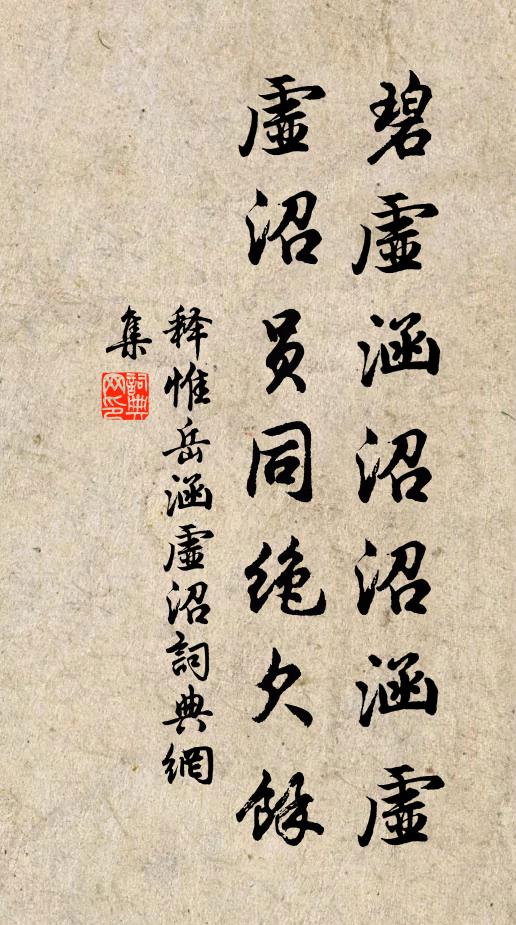 碧虛涵沼沼涵虛
虛沼員同绝欠餘
释惟岳涵虛沼詞典網
集
詞典
网印